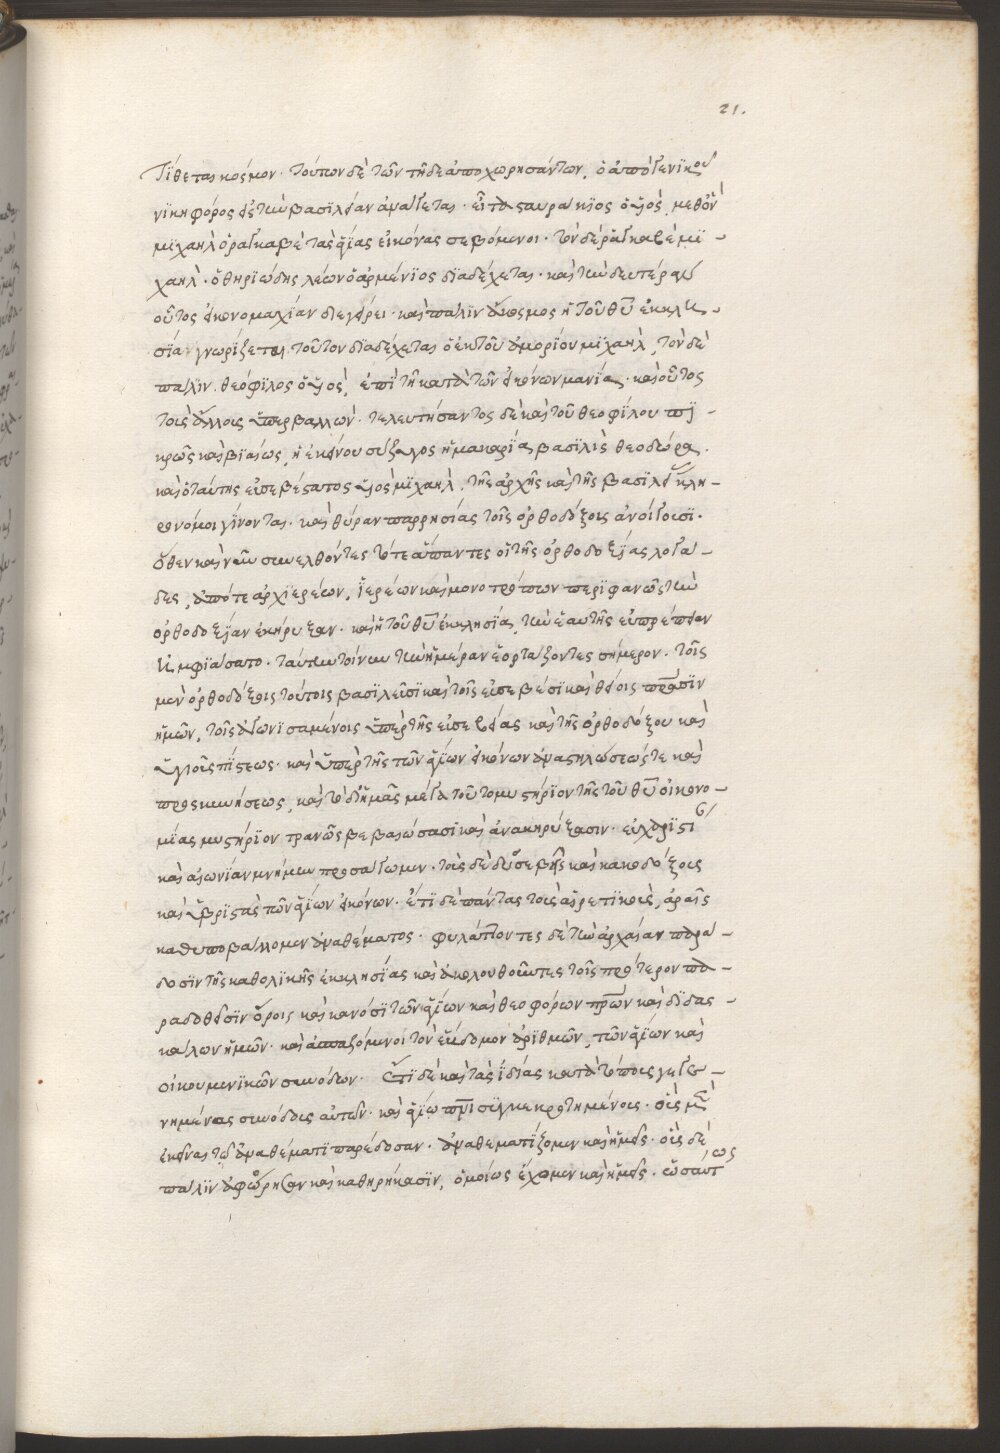 21.
τίθεται κόσμον· τούτων δὲ τῶν τῇδε ἀποχωρησάντων, ὁ ἀπὸ γενϊκοῦ
νϊκηφόρος εἰς τὴν βασϊλείαν ἀνάγεται· εἶτα σταυράκϊος ὁ υἱὸς, μεθ' ὃν
μϊχαὴλ ὁ ῥαγκαβὲ τὰς ἁγίας εἰκόνας σεβόμενοι· τὸν δὲ ῥαγκαβὲ μϊ-
χαὴλ· ὁ θηριώδης λέων ὁ ἀρμένϊος διαδέχεται· καὶ τὴν δευτέραν
οὗτος εἰκονομαχίαν διεγείρει· καὶ πάλϊν ἄκοσμος ἡ τοῦ θυ ἐκκλη-
σία γνωρίζεται τοῦτον διαδέχεται ὁ ἐκ τοῦ ἀμορίου μϊχαὴλ, τὸν δὲ
πάλϊν θεόφϊλος ὁ υἱὸς, ἐπὶ τῇ κατὰ τῶν εἰκόνων μανία· καὶ οὗτος
τοὺς ἄλλους ὑπερβαλλών· τελευτήσαντος δὲ καὶ τοῦ θεοφίλου πϊ-
κρῶς καὶ βϊαίως, ἡ ἐκείνου σύζυγος ἡ μακαρία βασϊλὶς θεοδώρα·
καὶ ὁ ταύτης εὐσεβέστατος υἱὸς μϊχαὴλ, τῆς ἀρχῆς καὶ τῆς βασϊλείας κλη-
ρονόμοι γίνονται· καὶ θύραν παρρησίας τοῖς ὀρθοδόξοις ἀνοίγουσι·
ὅθεν καὶ νῦν συνελθόντες τότε ἅπαντες οἱ τῆς ὀρθοδοξίας λογά-
δες, ἀπό τε ἀρχϊερέων, ἱερέων καὶ μονοτρόπων περϊφανῶς τὴν
ὀρθοδοξίαν ἐκήρυξαν· καὶ ἡ τοῦ θυ ἐκκλησία, τὴν ἑαυτῆς εὐπρέπειαν
ἠμφϊάσατο· ταύτην τοίνυν τὴν ἡμέραν ἑορτάζοντες σήμερον· τοῖς
μὲν ὀρθοδόξοις τούτοις βασϊλεῦσϊ καὶ τοῖς εὐσεβέσϊ καὶ θείοις πρασϊν
ἡμῶν, τοῖς ἀγωνϊσαμένοις ὑπὲρ τῆς εὐσεβείας καὶ τῆς ὀρθοδόξου καὶ
ὑγιοῦς πίστεως· καὶ ὑπὲρ τῆς τῶν ἁγίων εἰκόνων ἀναστηλώσεώς τε καὶ
προσκυνήσεως, καὶ τὸ δι' ἡμᾶς μέγα τοῦτο μυστήρϊον τῆς τοῦ θυ οἰκονο-
μίας μυστήρϊον τρανῶς βεβαιώσασϊ καὶ ἀνακηρύξασιν· εὐχαρϊστί
καὶ αἰωνίαν μνήμην προσάγωμεν· τοὺς δὲ δυσσεβεῖς καὶ κακοδόξους
καὶ ὑβρϊστὰς τῶν ἁγίων εἰκόνων· ἔτϊ δὲ πάντας τοὺς αἱρετϊκοὺς, ἀραῖς
καθυποβάλλομεν ἀναθέματος· φυλάττοντες δὲ τὴν ἀρχαίαν παρά-
δοσϊν τῆς καθολϊκῆς ἐκκλησίας καὶ ἀκολουθοῦντες τοῖς πρότερον πα-
ραδοθεῖσϊν ὅροις καὶ κανόσϊ τῶν ἁγίων καὶ θεοφόρων πρων καὶ δϊδας-
κάλων ἡμῶν· καὶ ἀσπαζόμενοι τὸν ἕβδομον ἀρϊθμῶν, τῶν ἁγίων καὶ
οἰκουμενϊκῶν συνόδων· ἔτϊ δὲ καὶ τὰς ἰδίας κατὰ τόπους γεγε-
νημένας συνόδους αὐτῶν· καὶ ἁγίω πνι συγκεκροτημένους· οὓς μὲν
ἐκεῖνοι τῷ ἀναθέματϊ παρέδοσαν· ἀναθεματίζομεν καὶ ἡμεῖς· οὓς δὲ
πάλϊν ἀφώρησαν καὶ καθηρήκασϊν, ὁμοίως ἔχομεν καὶ ἡμεῖς· ὡσαύτως